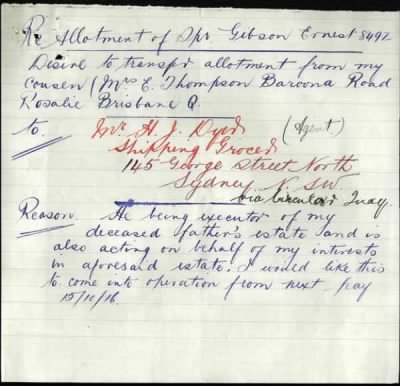 Re Allotment of Spr Gibson Ernest 8492
Desire to transfer allotment from my
cousen (Mrs E. Thompson Baroona Road
Rosalie Brisbane Q.
to. Mr H. J. Dyer (Agent)
Shipping Grocer
145 George Street North
Sydney N.S.W.
via Circular Quay
Reason. He being executor of my
deceased father's estate and is
also acting on behalf of my interests
in aforesaid estate. I would like this
to come into operation from next pay
15/10/16.